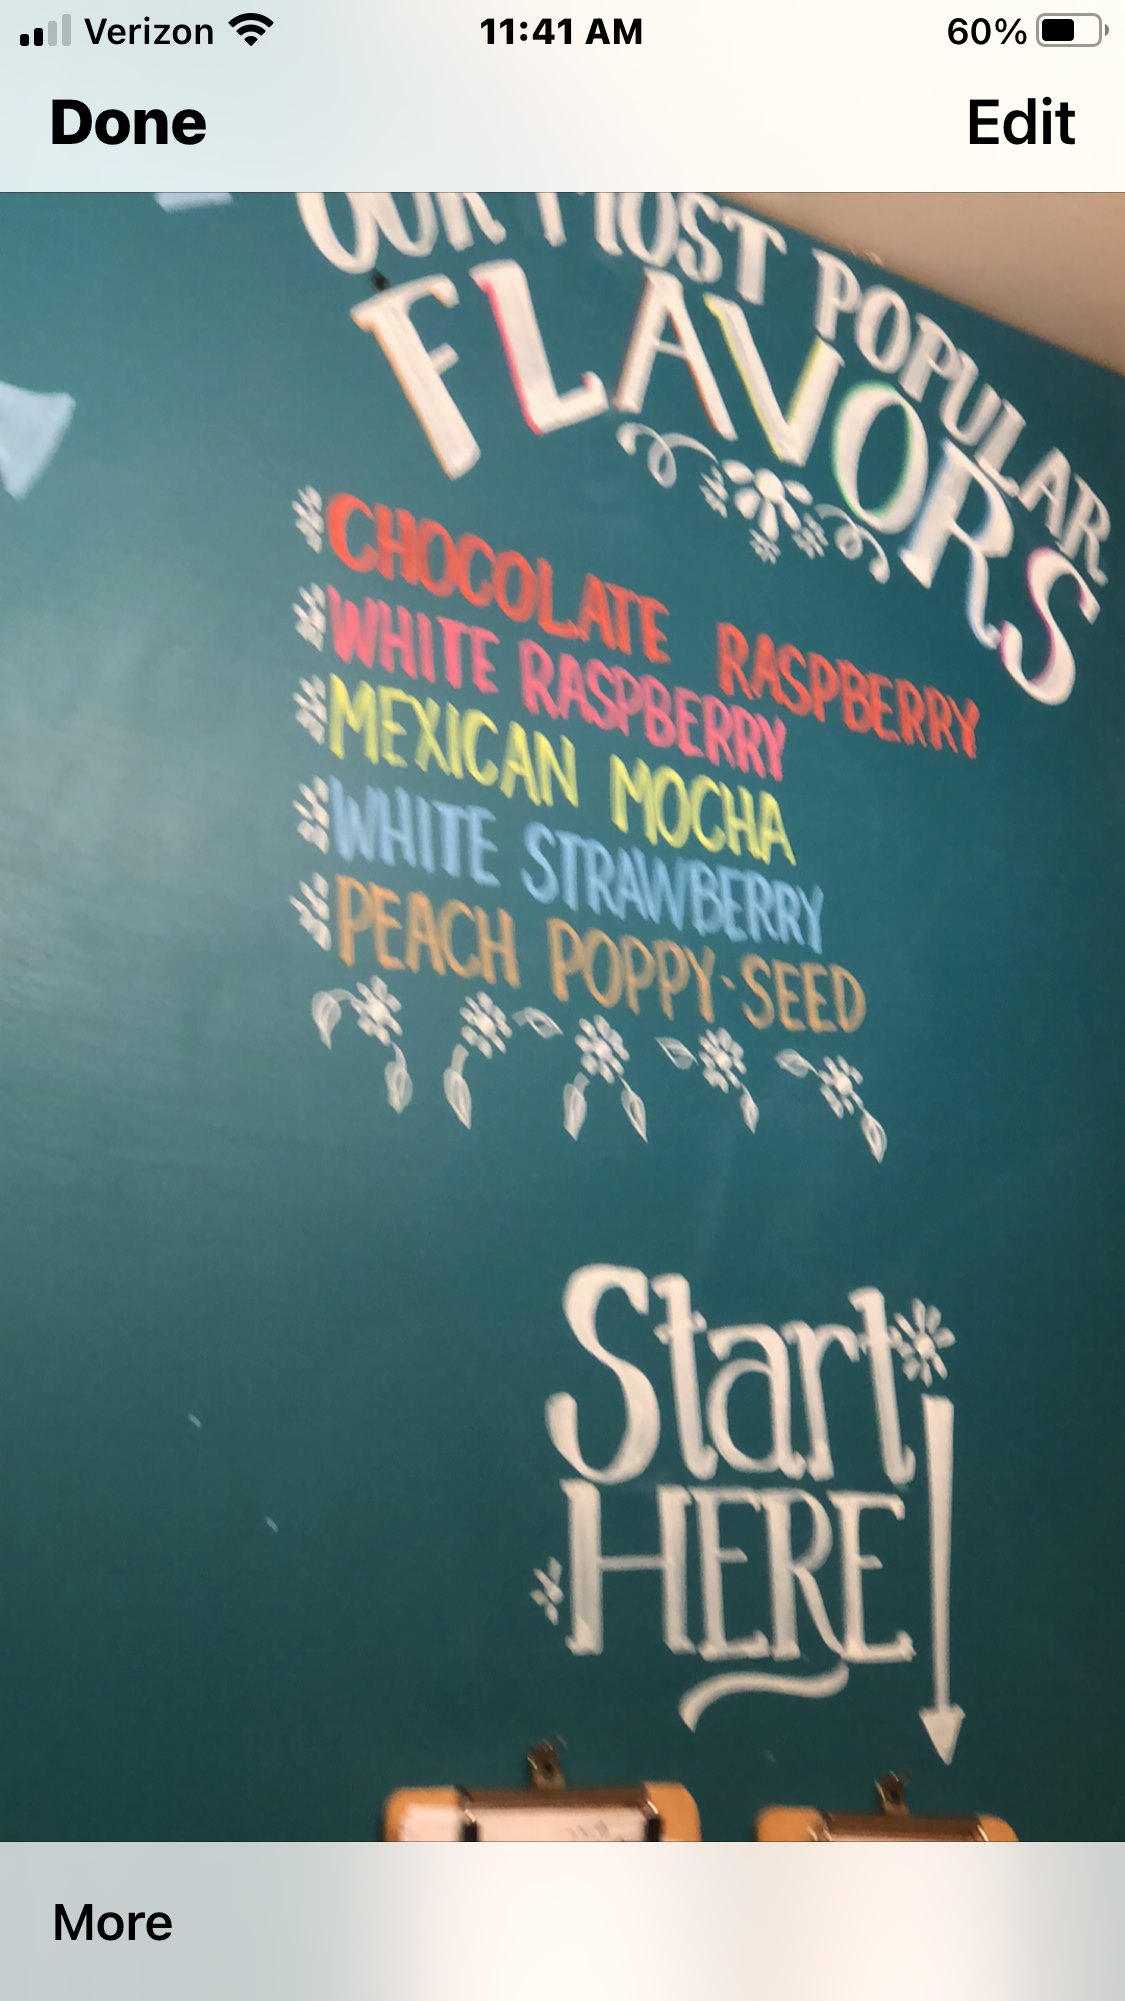 Verizon 11:41 AM 60%
Done Edit
OUR MOST POPULAR
FLAVORS
CHOCOLATE RASPBERRY
WHITE RASPBERRY
MEXICAN MOCHA
WHITE STRAWBERRY
PEACH POPPY-SEED
Start
HERE
More